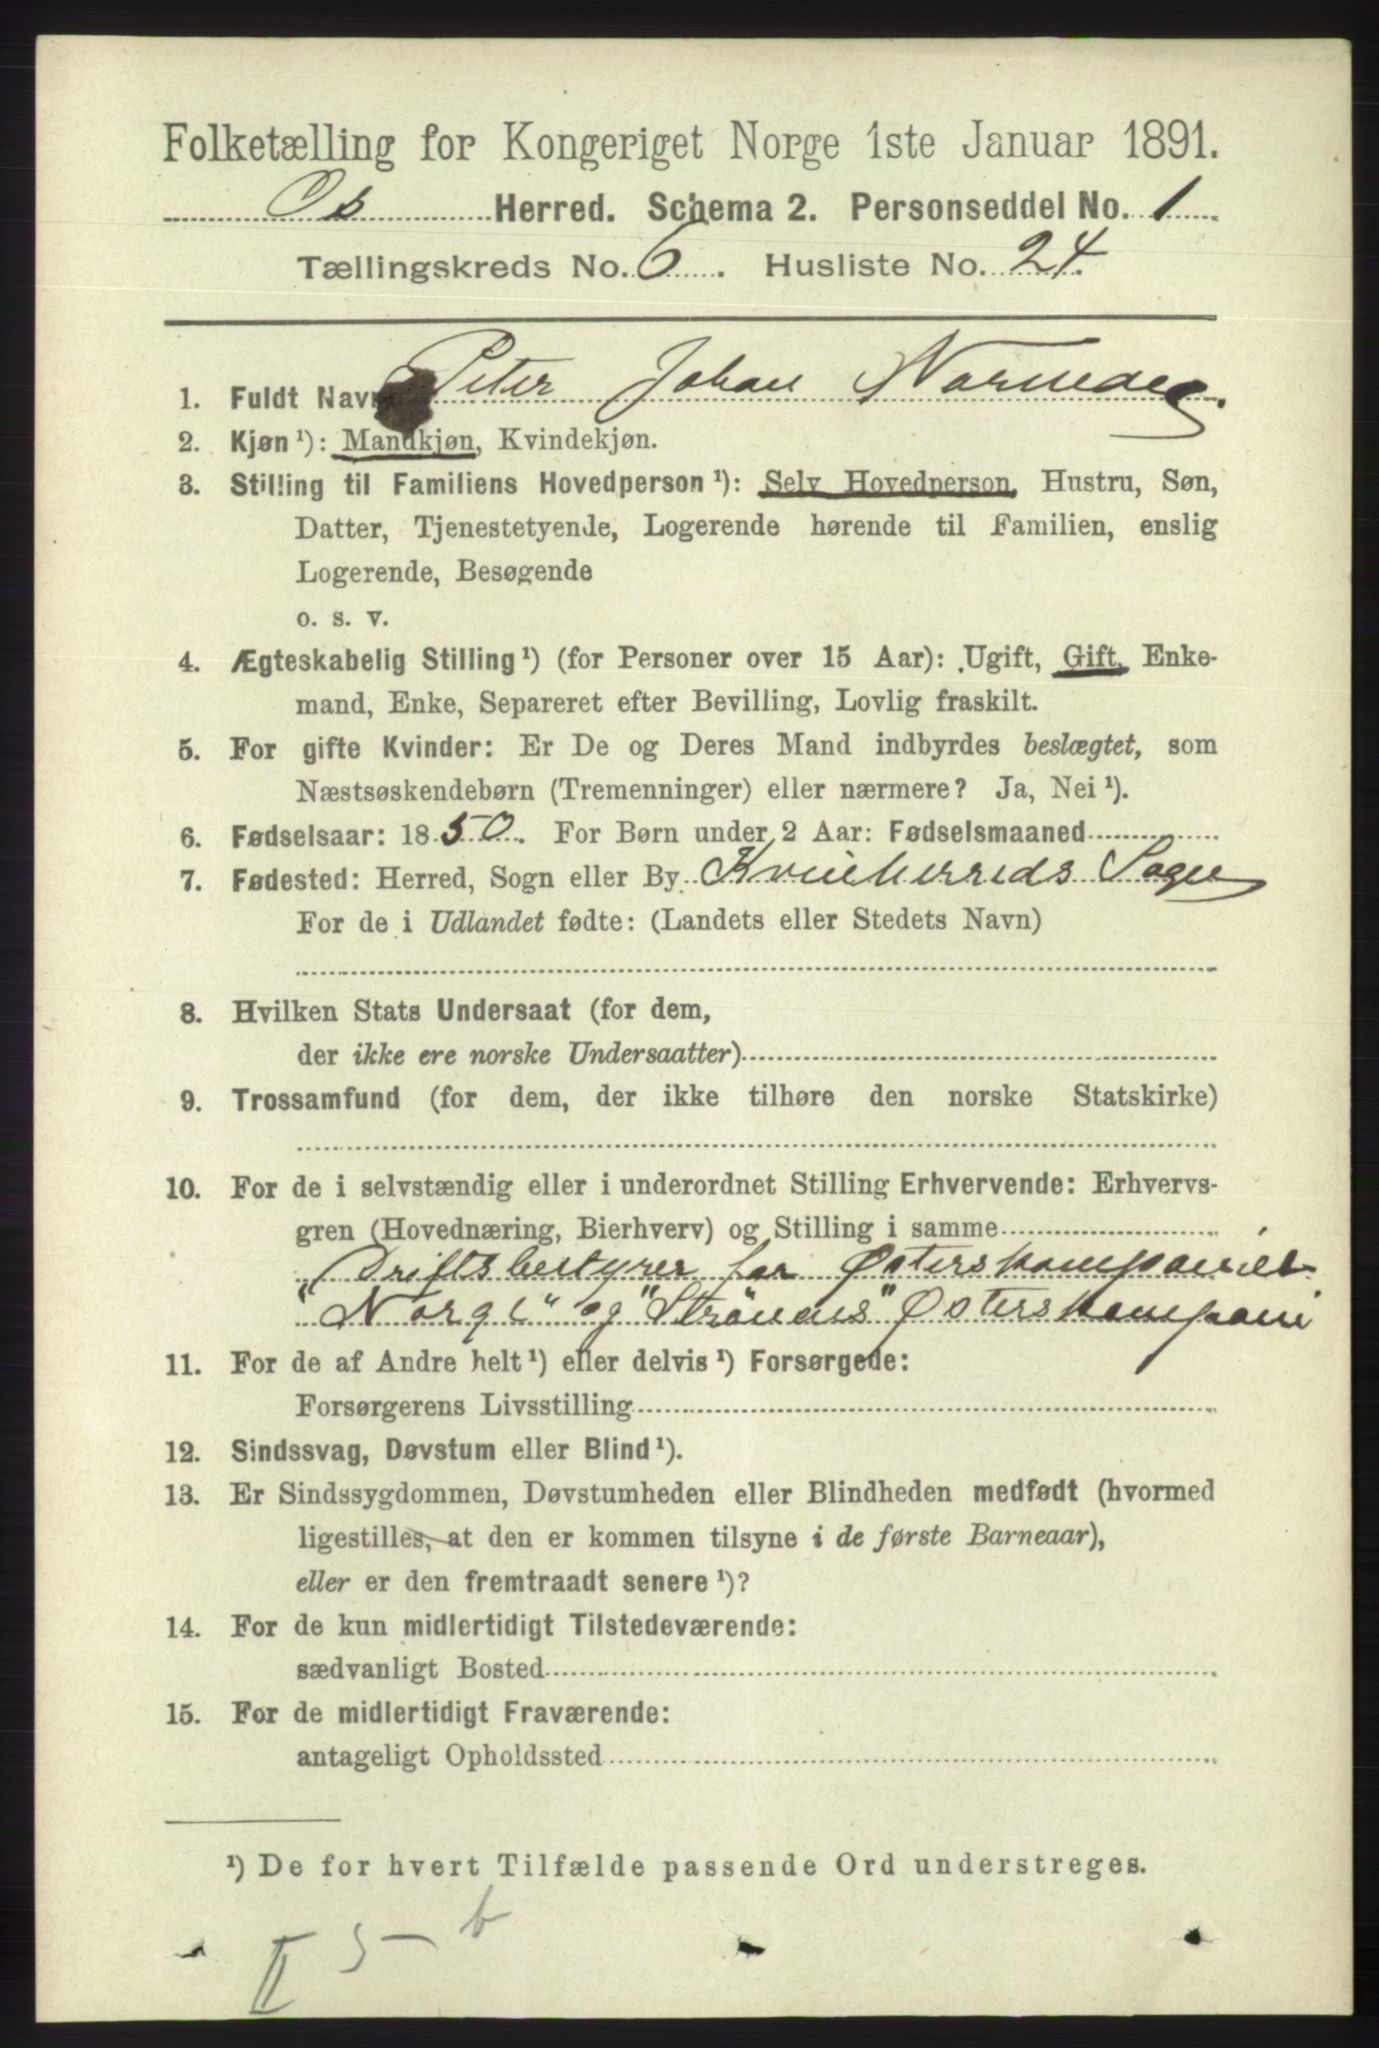 Folketælling for Kongeriget Norge 1ste Januar 1891.
Os Herred. Schema 2. Personseddel No. 1
Tællingskreds No. 6. Husliste No. 24.
1. Fuldt Navn Peter Johan
2. Kjøn¹): Mandkjøn, Kvindekjøn.
3. Stilling til Familiens Hovedperson¹): Selv Hovedperson, Hustru, Søn,
Datter, Tjenestetyende, Logerende hørende til Familien, enslig
Logerende, Besøgende
o. s. v.
4. Ægteskabelig Stilling¹) (for Personer over 15 Aar): Ugift, Gift, Enke-
mand, Enke, Separeret efter Bevilling, Lovlig fraskilt.
5. For gifte Kvinder: Er De og Deres Mand indbyrdes beslægtet, som
Næstsøskendebørn (Tremenninger) eller nærmere? Ja, Nei¹).
6. Fødselsaar: 1850. For Børn under 2 Aar: Fødselsmaaned
7. Fødested: Herred, Sogn eller By Kvinherreds Sogn
For de i Udlandet fødte: (Landets eller Stedets Navn)
8. Hvilken Stats Undersaat (for dem,
der ikke ere norske Undersaatter)
9. Trossamfund (for dem, der ikke tilhøre den norske Statskirke)
10. For de i selvstændig eller i underordnet Stilling Erhvervende: Erhvervs-
gren (Hovednæring, Bierhverv) og Stilling i samme
Driftsbestyrer for Østerskompaniet
"Norge" og "Strønens" Østerskompani
11. For de af Andre helt¹) eller delvis¹) Forsørgede:
Forsørgerens Livsstilling
12. Sindssvag, Døvstum eller Blind¹).
13. Er Sindssygdommen, Døvstumheden eller Blindheden medfødt (hvormed
ligestilles, at den er kommen tilsyne i de første Barneaar),
eller er den fremtraadt senere¹)?
14. For de kun midlertidigt Tilstedeværende:
sædvanligt Bosted
15. For de midlertidigt Fraværende:
antageligt Opholdssted
¹) De for hvert Tilfælde passende Ord understreges.
II 5 - b